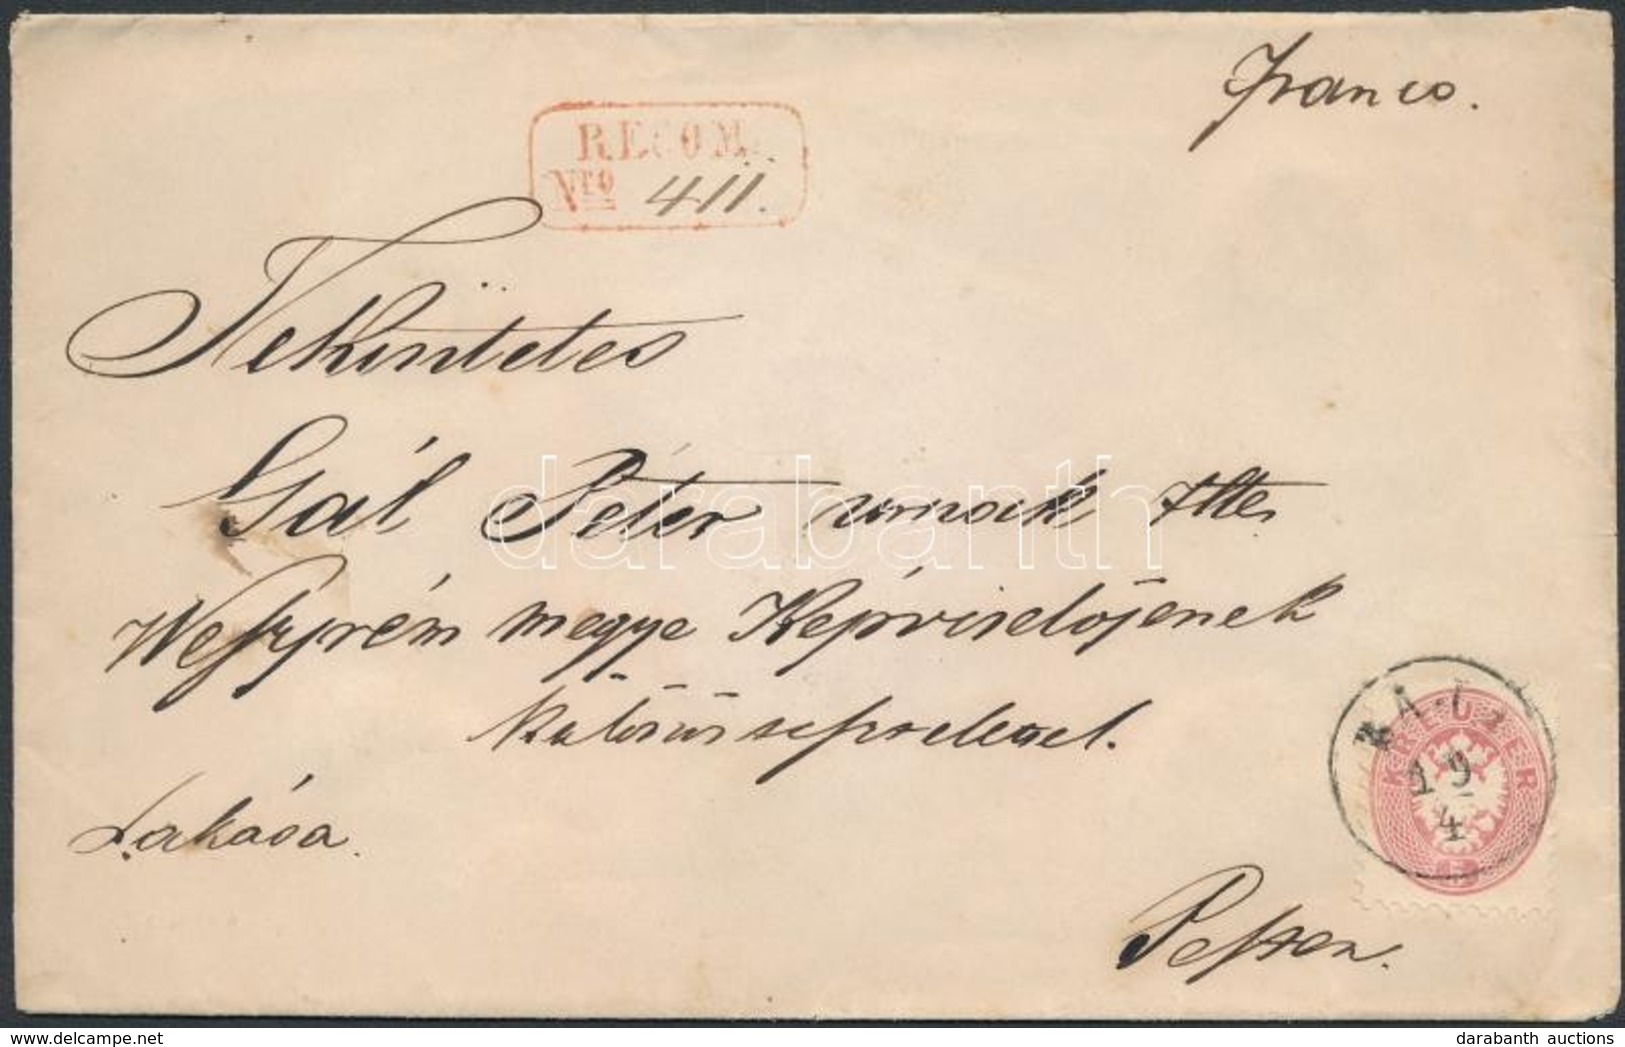 Franco.
RECOM.
Nro 411.
Tekintetes
Gál Péter urnak
Weszprém megye Képviselőjének
különös tisztelettel.
Lakása.
Pesten.
KREUZER
19
4
5
darabanth
delcampe.net
darabanth auctions